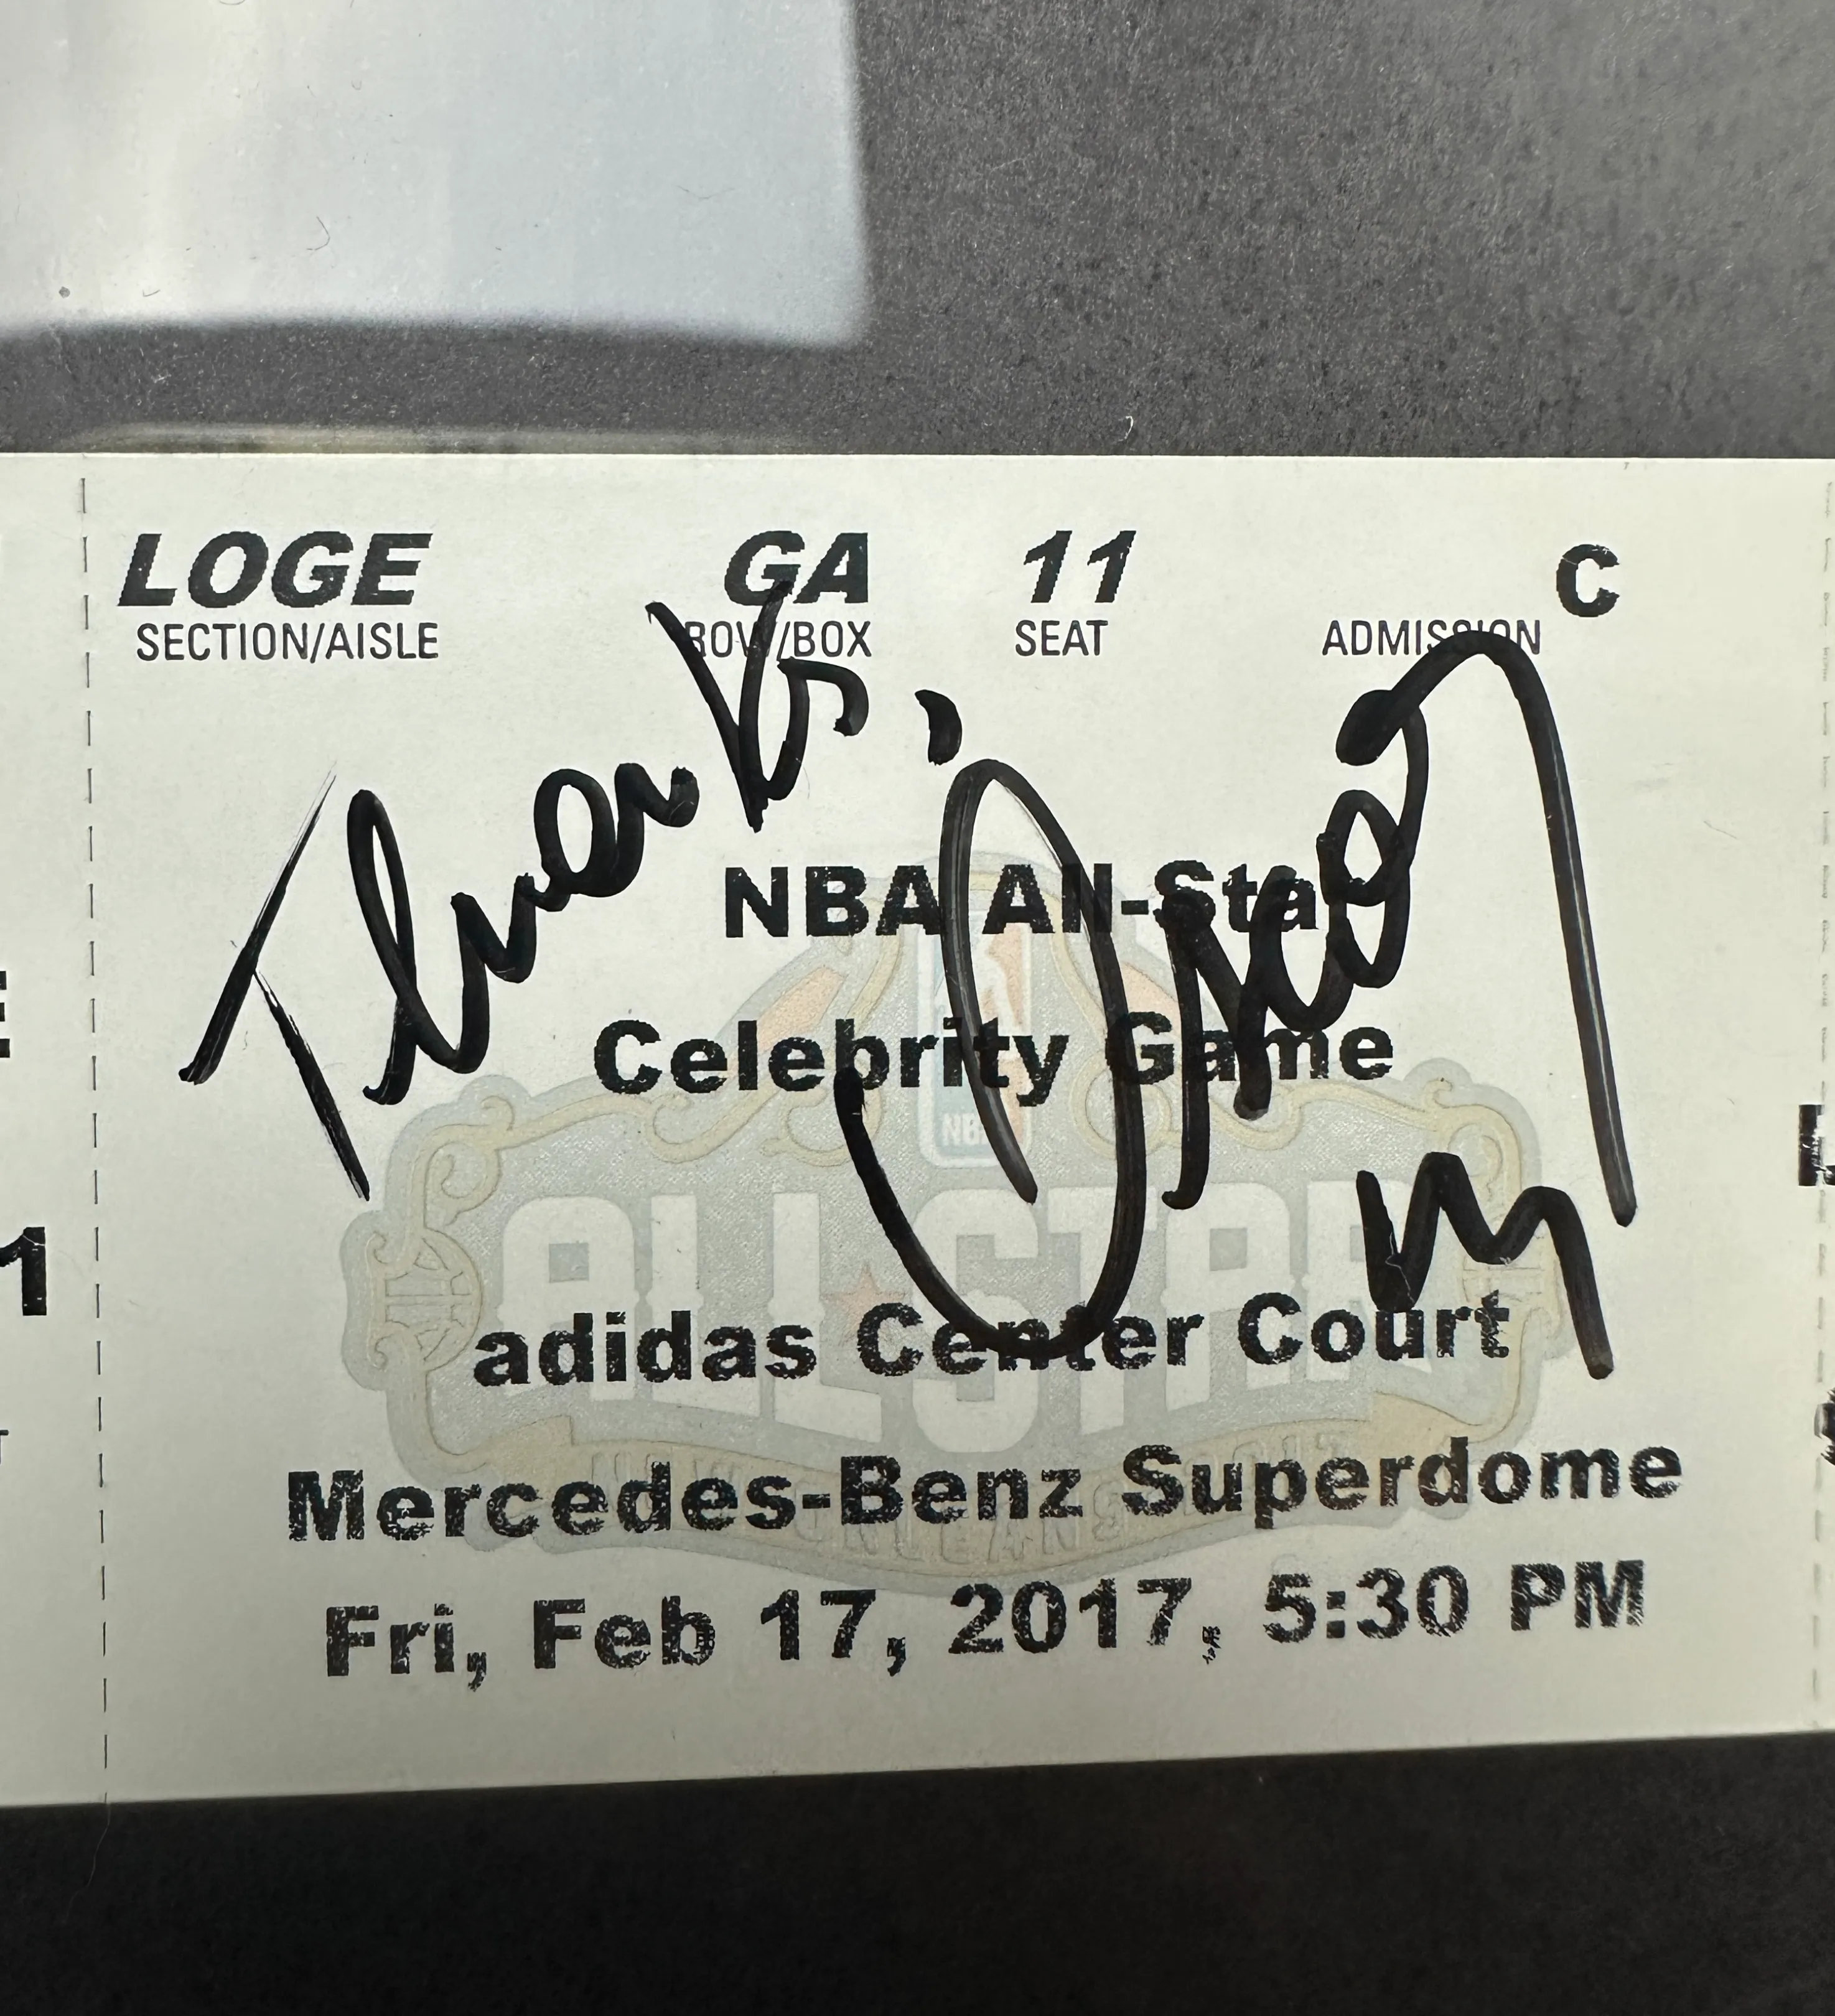 LOGE GA 11 C
SECTION/AISLE ROW/BOX SEAT ADMISSION
Thanks,
NBA All-Star
Celebrity Game
NBA
ALL-STAR
adidas Center Court
Mercedes-Benz Superdome
NEW ORLEANS 2017
Fri, Feb 17, 2017, 5:30 PM
1